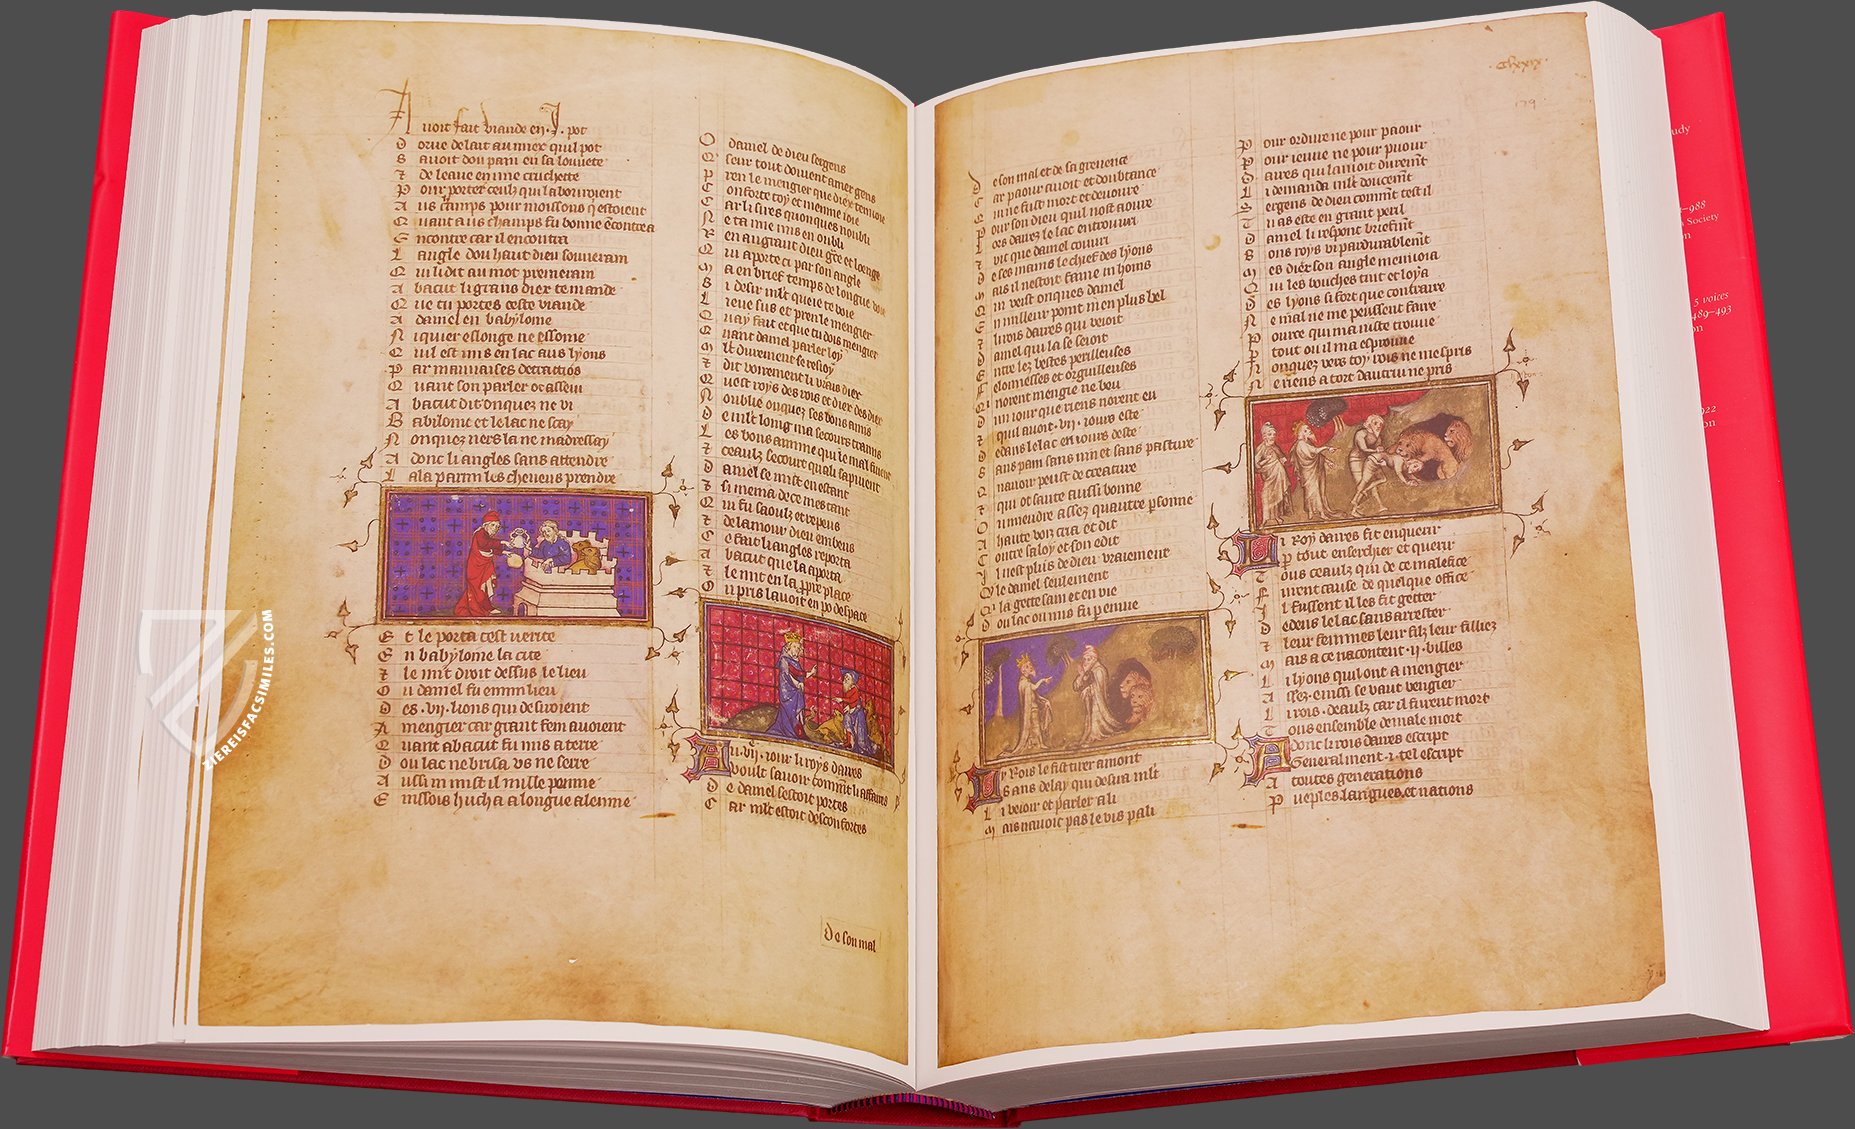 A uoit fait viande en .I. pot
O orue de lait au miex quil pot
S auoit dou pain en sa louuete
⁊ de leaue en une cruchette
P our porter ceulz qui labouroient
A us champs pour moissons qestoient
Q uant aus champs fu bonne encontrea
E ncontre car il encontra
L angle dou haut dieu souuerain
Q ui li dit au mot premerain
A bacut li grans diex te mande
Q ue tu portes ceste viande
A daniel en babylone
N i quier eslonge ne essome
Q uil est mis en lac aus lyons
P ar mauuaises
Q uant son parler ot
A bacut dit onquez ne vi
B abilone et le lac ne scay
N onquez vers la ne madressay
A donc li angles sans attendre
L a la parmi les cheueus prendre
E t le porta cest uerite
E n babylone la cite
⁊ le mit droit dessus le lieu
O u daniel fu emmi lieu
D es .vii. lions qui
A mengier car grant fem auoient
Q uant abacut fu mis a terre
D ou lac ne brisa us ne serre
A ussi
E nissois hucha a longue alenne
O daniel de dieu sergens
Q seur tout doiuent amer gens
P ren le mengier que diex tenuoie
C onforte toy et menne ioie
C ar li sires quonques noubli
N e ta mie mis en oubli
R en angrant dieu gce et loenge
Q ui aporte ci par son angle
M a en brief temps de longue voie
S i desir mlt que ie te voie
L ieue sus et pren le mengier
Q uay fait et que tu dois mengier
Q uant daniel parler loy
M lt durement se resioy
⁊ dit voirement li vrais diex
Q uest roys des rois et diex des diex
N oublie onquez ses bons amis
D e mlt long ma secours tramis
L es bons amme qui le mal fuient
⁊ ceaulz secourt quali sapuient
D aniel se mist en estant
⁊ si menia de ce mes tant
Q ui fu saoulz et repeus
⁊ de lamour dieu embeus
C e fait li angles reporta
A bacut que la aporta
⁊ le mit en la ppre place
O u pris lauoit en po despace
A u .vii. iour li roys daires
voult sauoir comment li affaires
D e daniel sestoit portes
C ar mlt estoit desconfortes
De son mal
.Clxxix.
179
D e son mal et de sa greuence
C ar paour auoit et doubtance
Q ui ne fust mort et deuoure
P our son dieu quil nost aoure
L ors daires le lac entrouuri
⁊ vit que daniel couuri
D e ses mains le chief des lyons
M ais il nestoit faine
en veist onques daniel
en milleur point nen plus bel
L i rois daires qui veoit
D aniel qui la se seoit
E ntre lez bestes perilleuses
F elonnesses et orguilleuses
Q i norent mengie ne beu
un iour que riens norent eu
⁊ quil auoit .vii. iours este
D edans le lac en iours deste
S ans pain sans uin et sans pasture
nauoir peust de creature
Q ui ot saute aussi bonne
a haute voix cria et dit
C ontre sa loy et son edit
I l nest plus de dieu vraiement
Q le daniel seulement
Q i la gette sain et en vie
D ou lac ou mis fu penuie
L y Rois le fist tirer amont
Sans delay qui desira mlt
L i veoir et parler a li
M ais nauoit pas le vis pali
P our ordure ne pour paour
P our ieune ne pour puour
D aires qui lamoit durement
L i demanda mlt doucement
S ergens de dieu comment test il
T u as este en grant peril
D aniel li respont briefment
B ons roys vi pardurablement
M es diex son angle menuoia
Q ui les bouches tint et loya
D es lyons si fort que contraire
N e mal ne me peussent faire
P ource qui ma iuste trouue
P tout ou il ma esprouue
N onquez vers toy rois ne mespris
N e riens a tort dautrui ne pris
L i Roy daires fit enquerir
P tout enserchier et querir
T ous ceaulz qui de ce malefice
F urent cause de quelque office
I l fussent il les fit getter
D edens le lac sans arrester
⁊ leur femmes leur filz leur filliez
M ais a ce nacontent .ii. billes
L i lyons quil ont a mengier
A ssez einssi se vaut vengier
L i rois deaulz car il furent mort
T ous ensemble de male mort
A donc li rois daires escript
Generalment .i. tel escript
A toutes generations
P ueples langues et nations
udy
–988
Society
n
5 voices
489–493
on
922
on
ZIEREISFACSIMILES.COM